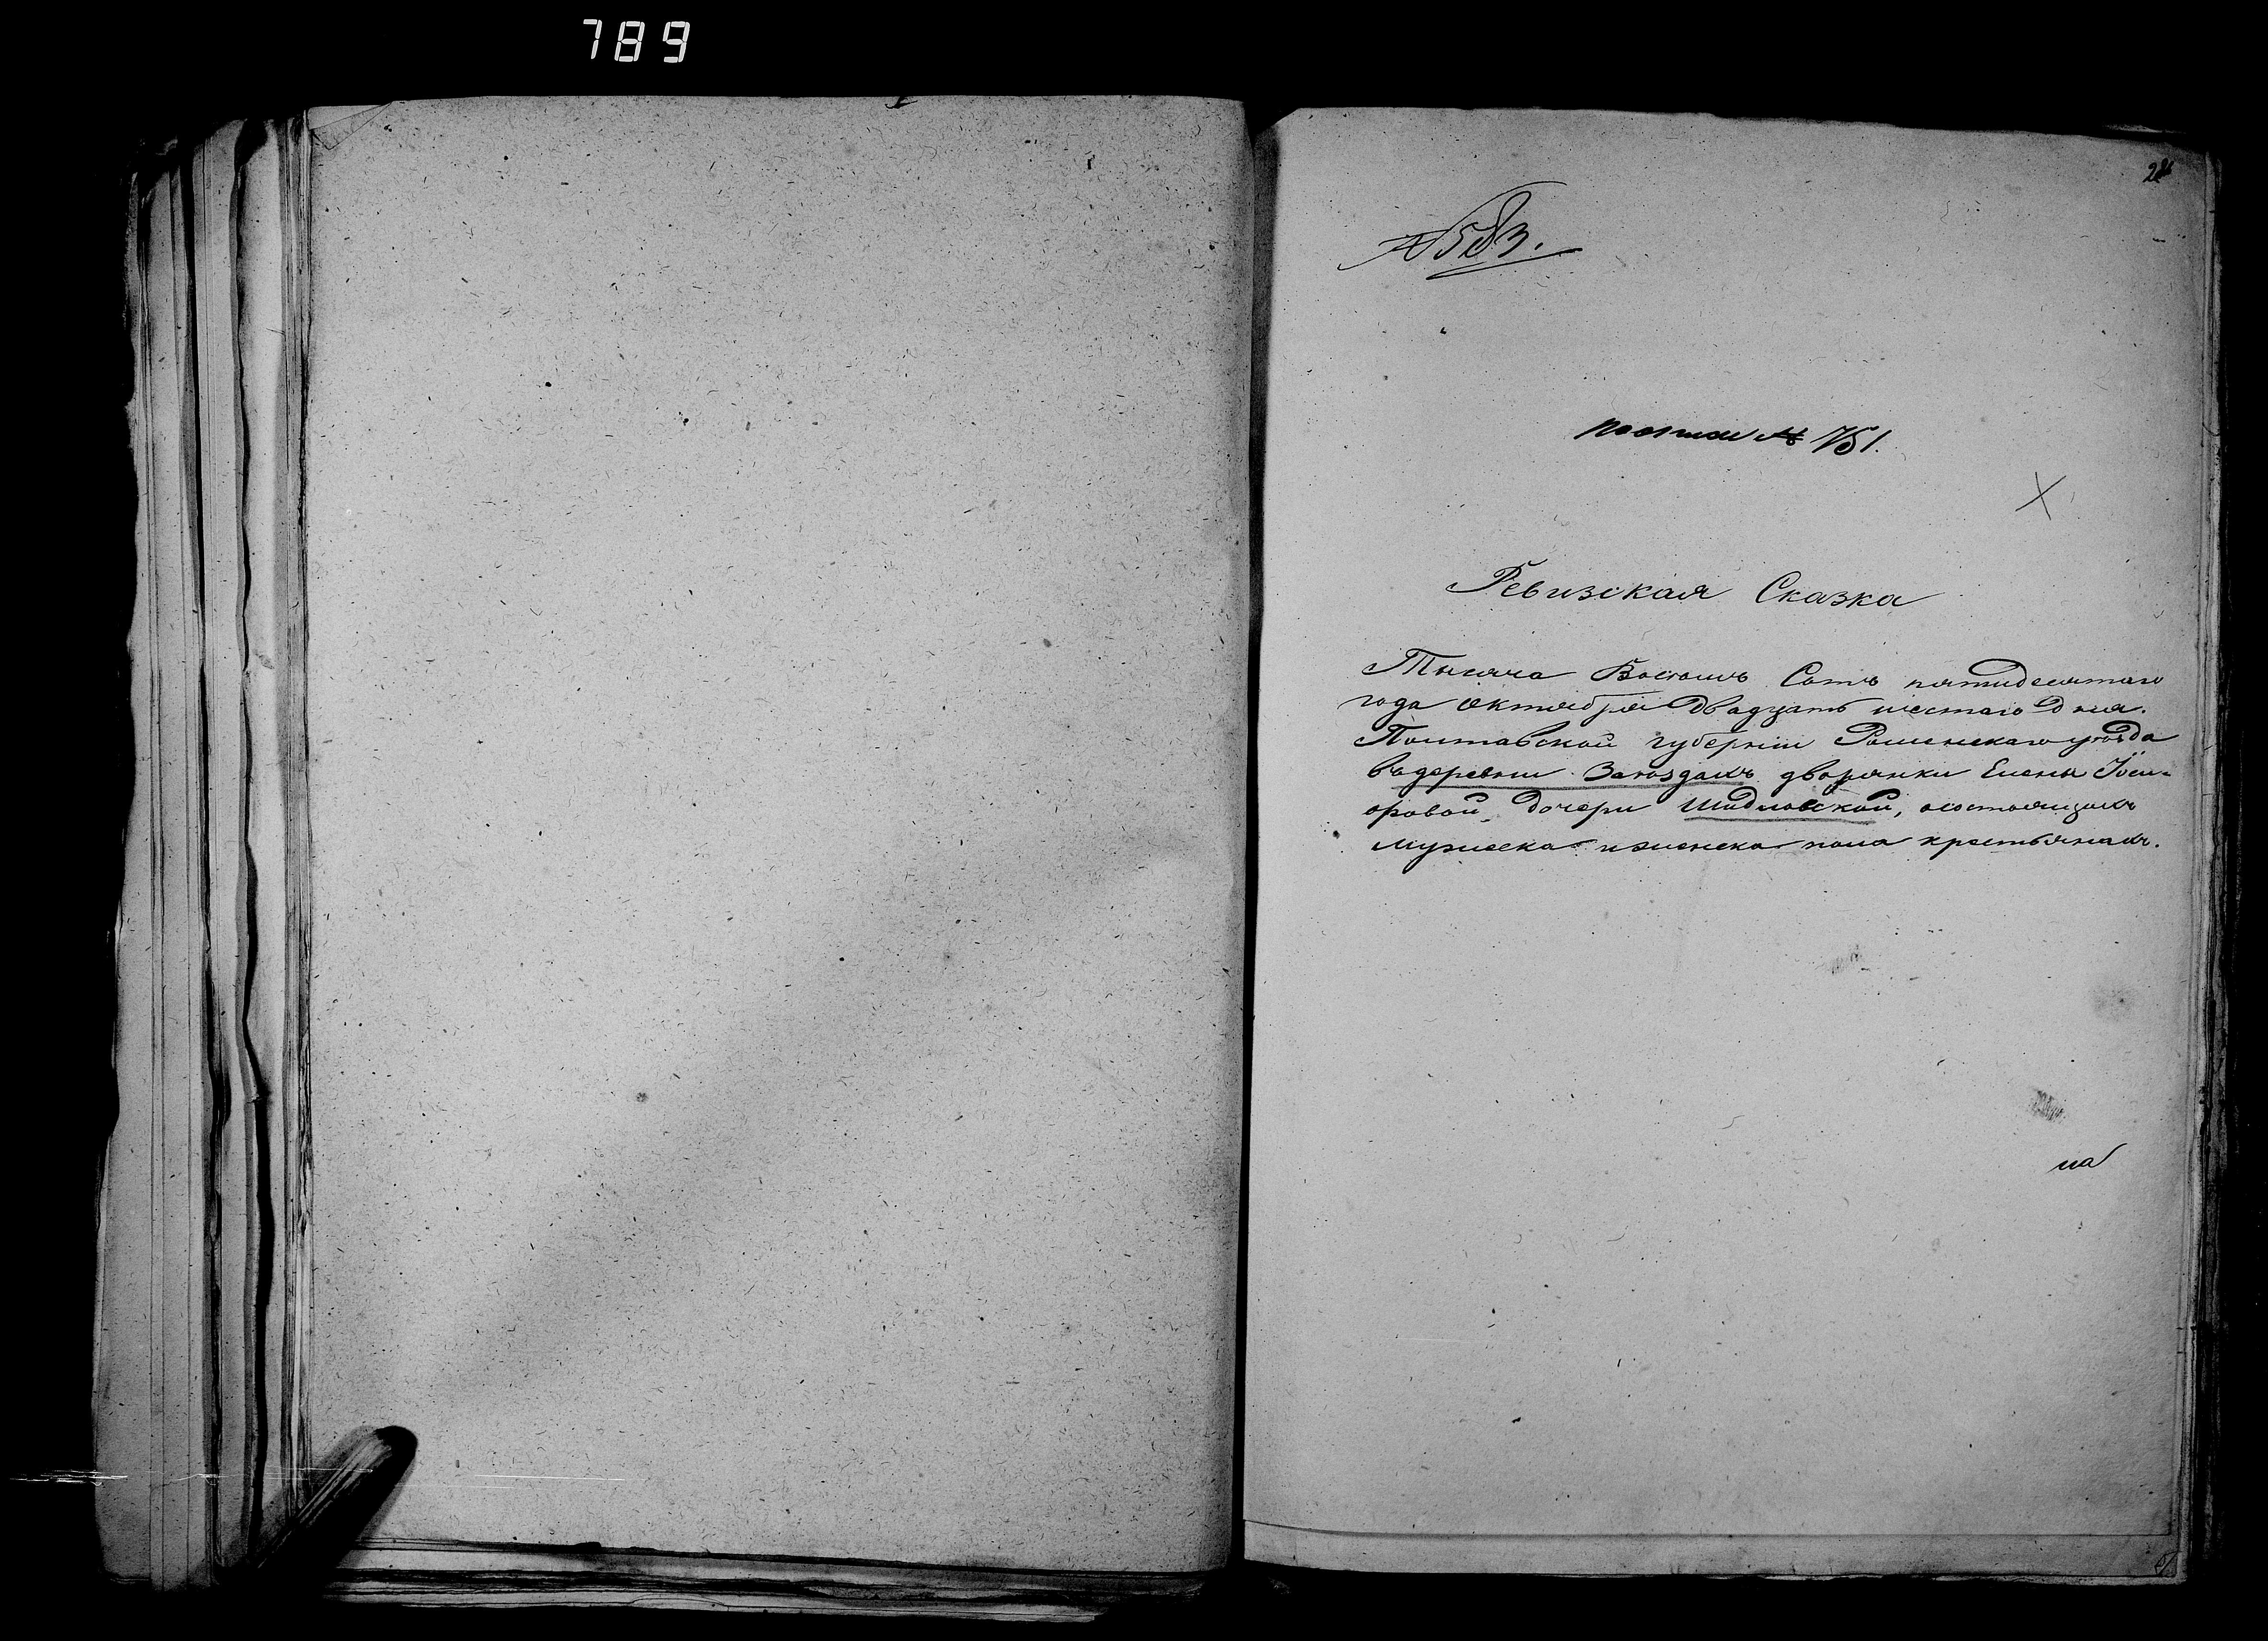 789
№ 583.
по описи № 751.
Х
Ревизская Сказка
Тысяча Восѣмь Сотъ пятидесятаго
года Октября двадцать шестаго дня.
Полтавской губерніи Роменскаго уѣзда
въ деревни Заѣздахъ дворянки Елены
дочери Шидловской, о состоящихъ
мужеска и женска пола крестьянахъ.
на